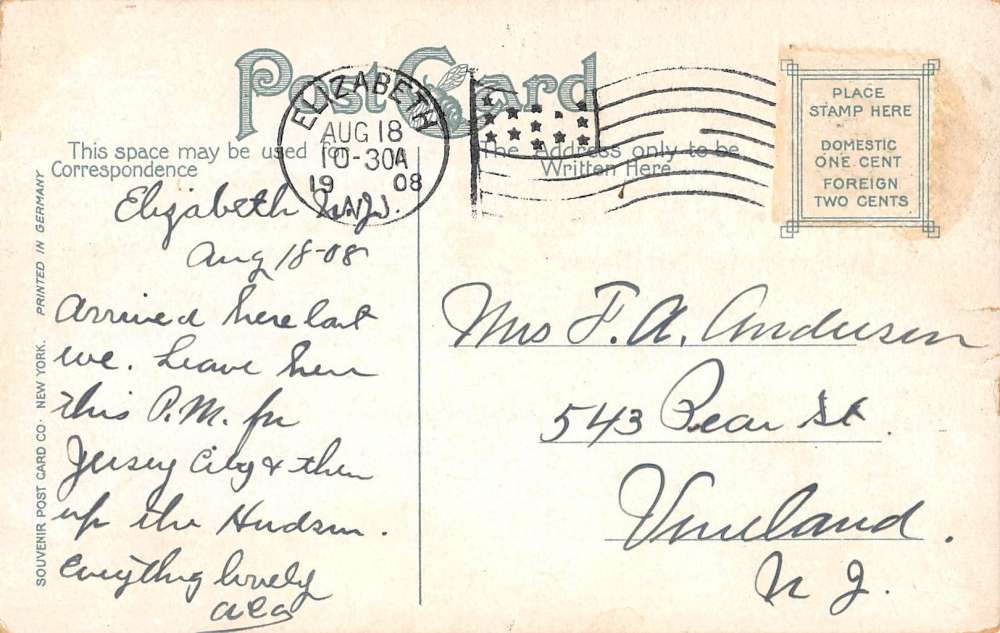 Post Card
ELIZABETH
AUG 18
10-30A
19 08
N.J.
This space may be used for
Correspondence
The Address only to be
Written Here
PLACE
STAMP HERE
DOMESTIC
ONE CENT
FOREIGN
TWO CENTS
SOUVENIR POST CARD CO. NEW YORK. PRINTED IN GERMANY
Elizabeth N.J.
Aug 18-08
Arrived here last
eve. Leave here
this P.M. for
Jersey City & then
up the Hudson.
Everything lovely
Mrs F. A. Anderson
543 Pear St.
Vineland.
N J.